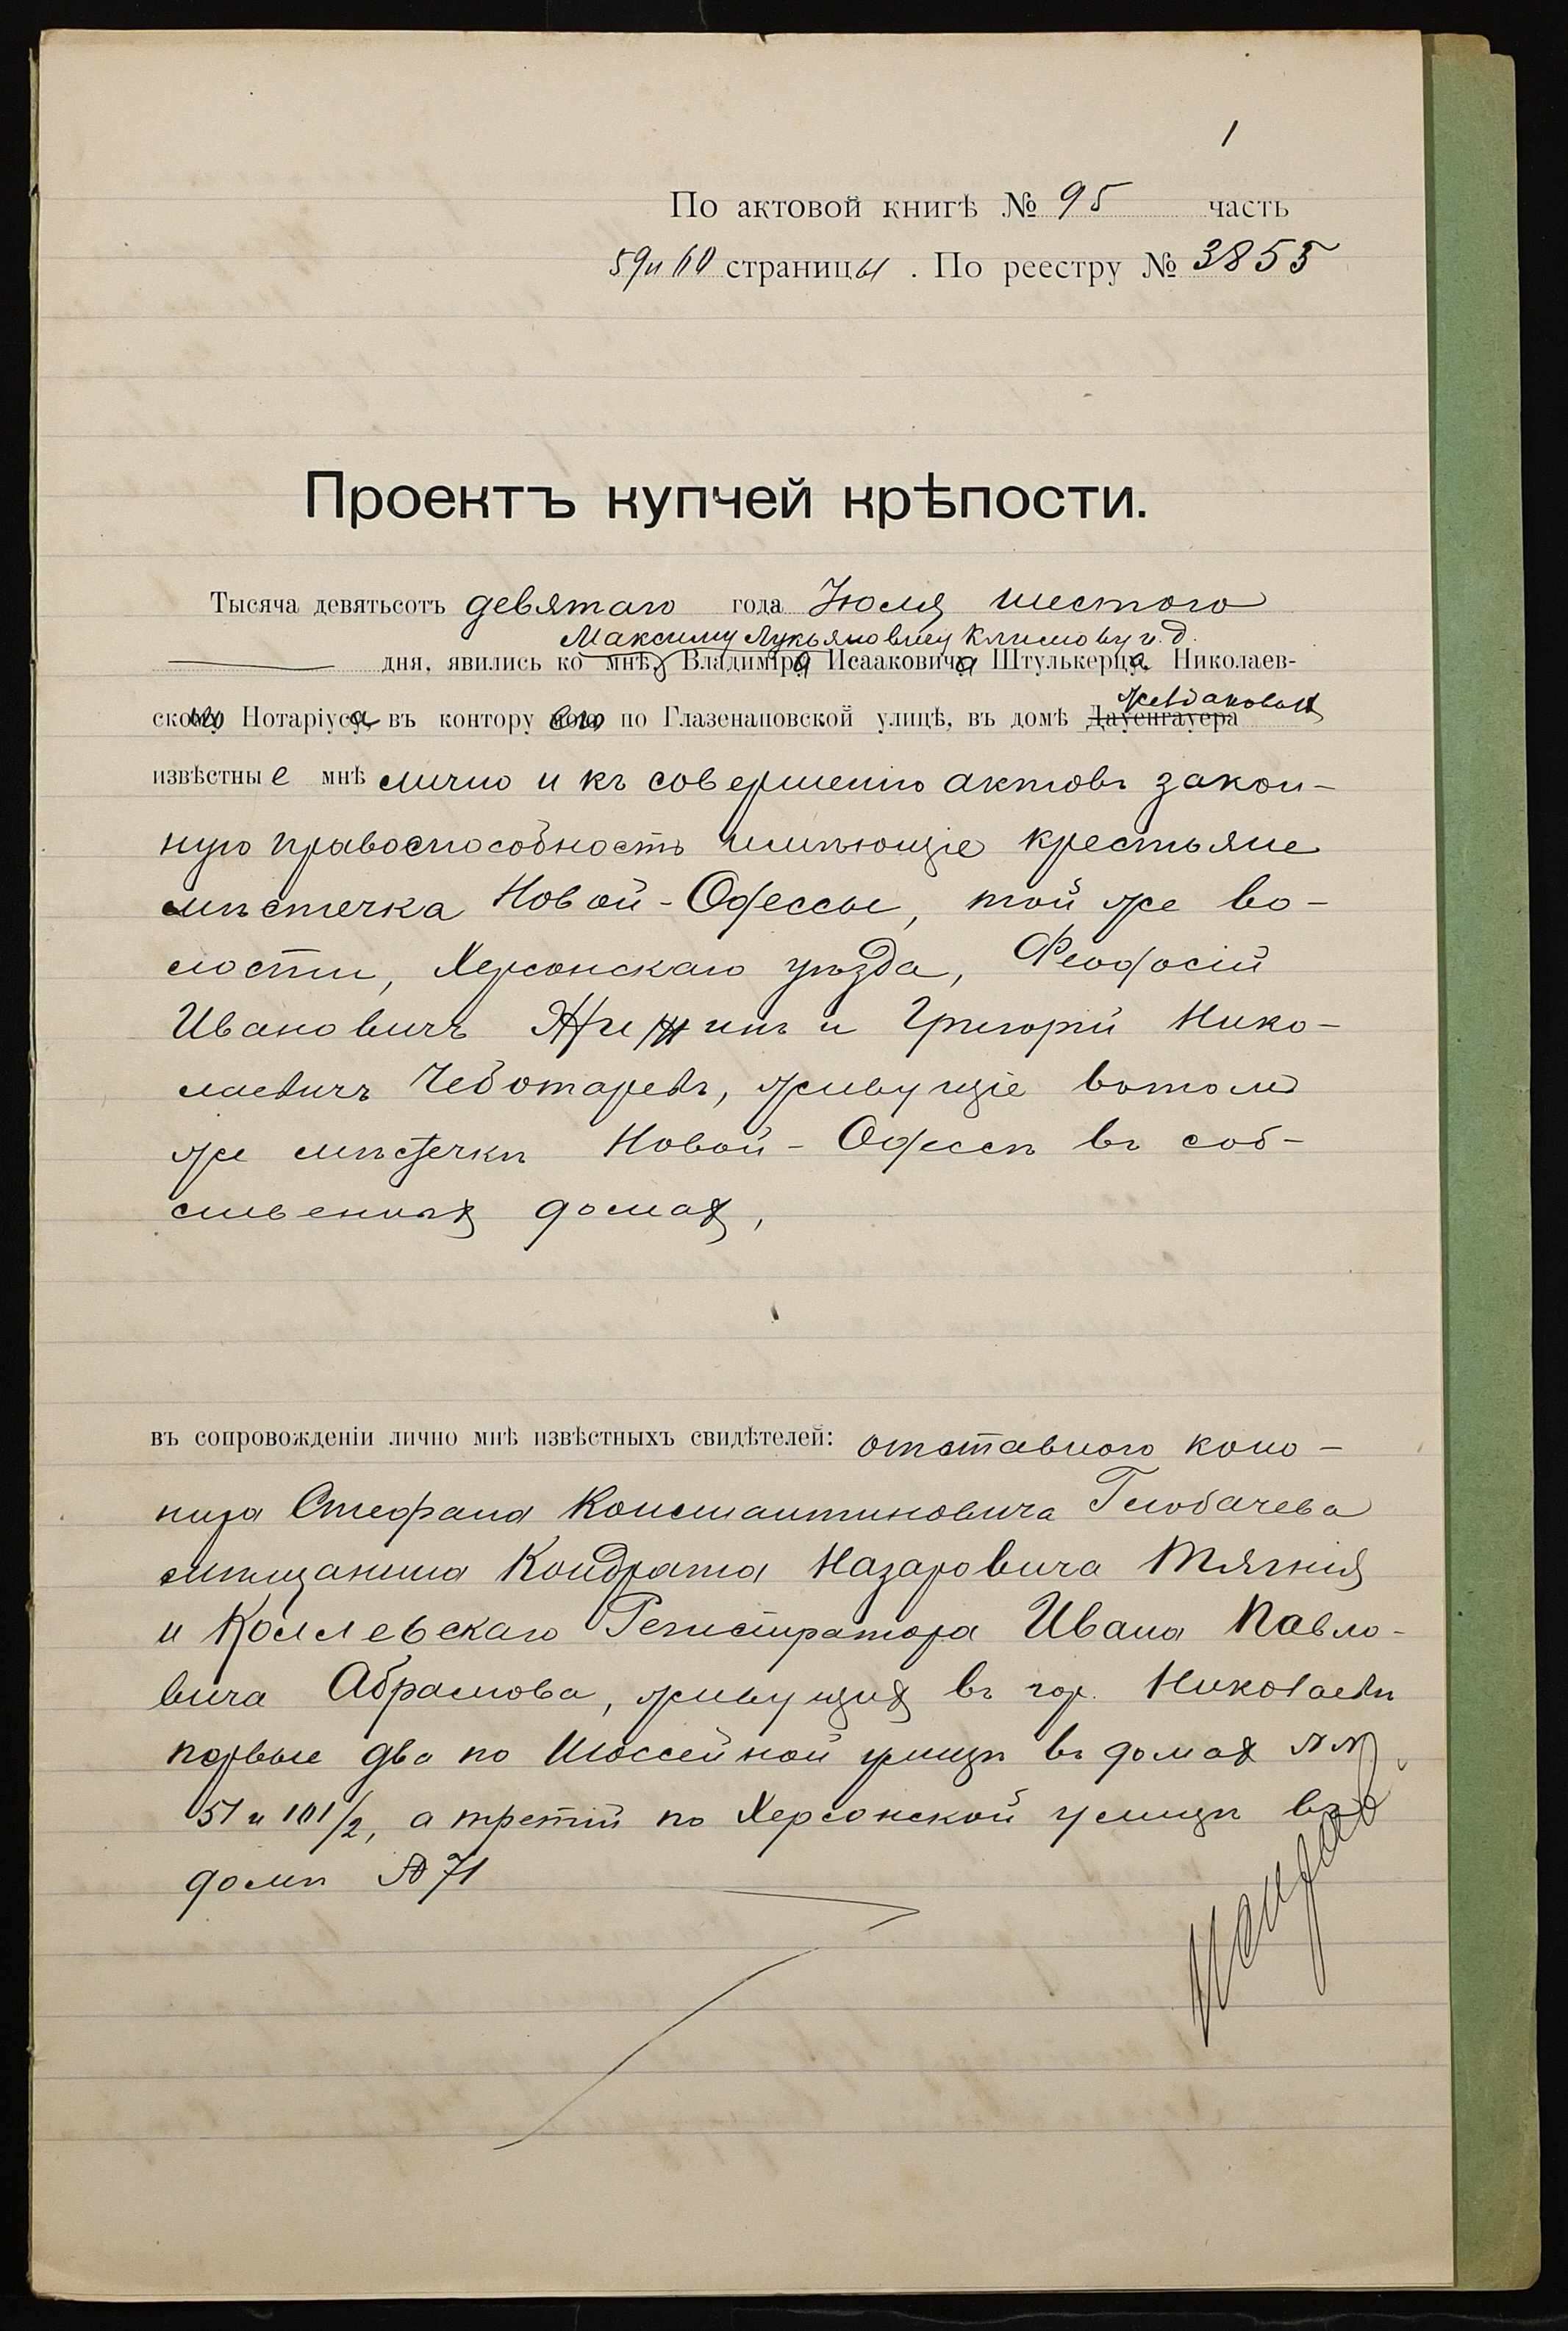 1
По актовой книгѣ № 95 часть
59 и 60 страницы . По реестру № 3855
Проектъ купчей крѣпости.
Тысяча девятьсотъ девятаго года Іюля шестого
Максиму Лукьяновичу Климову и.д.
дня, явились ко мнѣ, Владиміра Исааковича Штулькерца Николаев-
скому Нотаріуса, въ контору его по Глазенаповской улицѣ, въ домѣ Дауенгауера
извѣстные мнѣ лично и къ совершенію актовъ закон-
ную правоспособность имѣющіе крестьяне
мѣстечка Новой-Одессы, той же во-
лости, Херсонскаго уѣзда, Феодосій
Ивановичъ Жижинъ и Григорій Нико-
лаевичъ Чеботаревъ, живущіе въ томъ
же мѣстечкѣ Новой-Одессѣ въ соб-
ственныхъ домахъ,
въ сопровожденіи лично мнѣ извѣстныхъ свидѣтелей: отставного коно-
нира Стефана Константиновича Глобачева
мѣщанина Кондрата Назаровича Тягния
и Коллежскаго Регистратора Ивана Павло-
вича Абрамова, живущихъ въ гор. Николаевѣ
первые два по Шоссейной улицѣ въ домахъ №№
51 и 101/2, а третій по Херсонской улицѣ въ
домѣ № 71